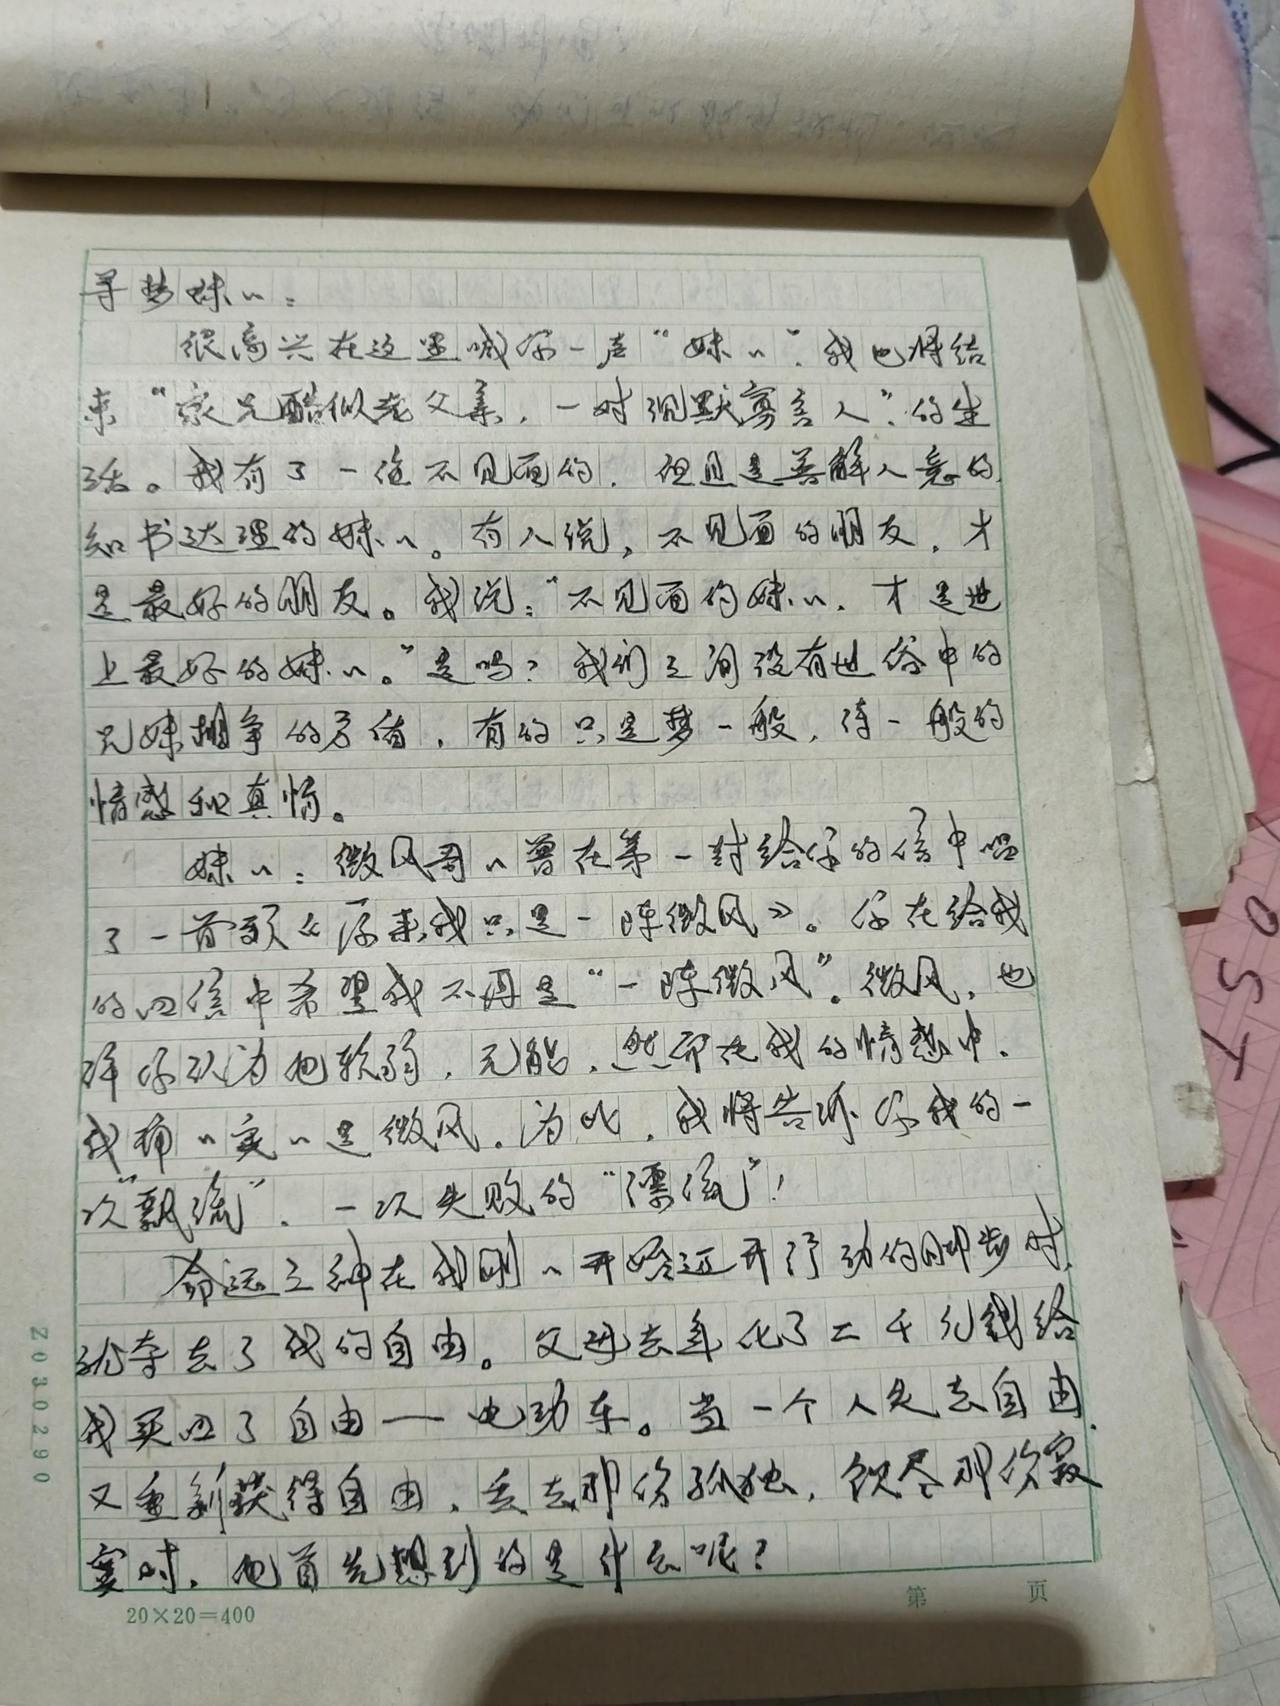 寻梦妹〃:
很高兴在这里喊你一声“妹〃”.我也将结
束“家兄酷似老父亲,一对沉默寡言人”.的生
活。我有了一位不见面的,但且是善解人意的
知书达理的妹〃。有人说,不见面的朋友,才
是最好的朋友。我说:“不见面的妹〃,才是世
上最好的妹〃。”是吗?我们之间没有世俗中的
兄妹相争的,有的只是梦一般,诗一般的
情感和真情。
妹〃:微风哥〃曾在第一封给你的信中唱
了一首歌《原来我只是一阵微风》。你在给我
的回信中希望我不再是“一阵微风”。微风,也
许你认为他软弱,无能,然而在我的情感中,
我确〃实〃是微风,为此,我将告诉你我的一
次“飘流”,一次失败的“漂流”!
命运之神在我刚〃开始迈开行动的脚步时,
就夺去了我的自由。父母去年化了二千元钱给
我买回了自由——电动车。当一个人失去自由,
又重新获得自由,丢去那份孤独,饮尽那份寂
寞时,他首先想到的是什么呢?
20×20=400
第 页
Z030290
150